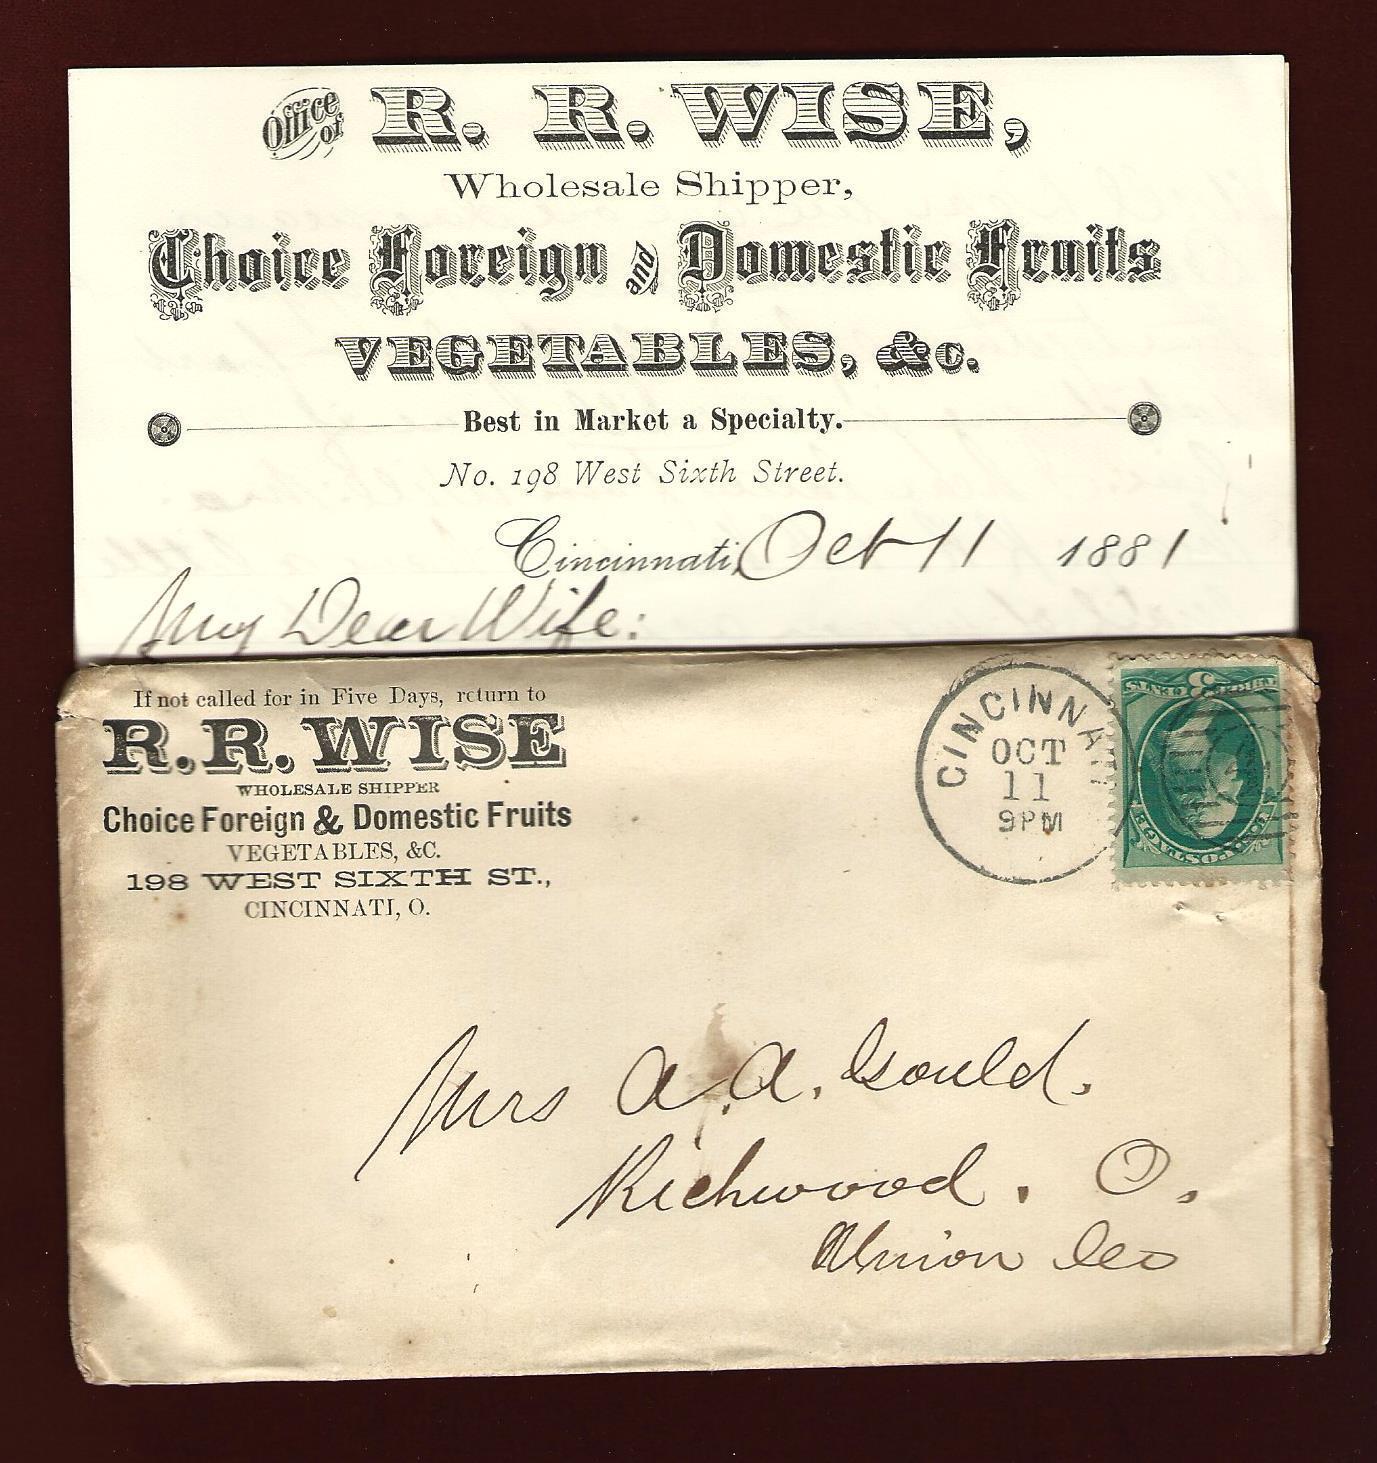 Office of R. R. WISE,
Wholesale Shipper,
Choice Foreign and Domestic Fruits
VEGETABLES, &c.
Best in Market a Specialty.
No. 198 West Sixth Street.
Cincinnati, Oct 11 1881
My Dear Wife:
If not called for in Five Days, return to
R. R. WISE
WHOLESALE SHIPPER
Choice Foreign & Domestic Fruits
VEGETABLES, &C.
198 WEST SIXTH ST.,
CINCINNATI, O.
CINCINNATI
OCT
11
9PM
3
POSTAGE
Mrs A. A. Gould,
Richwood. O.
Union Co